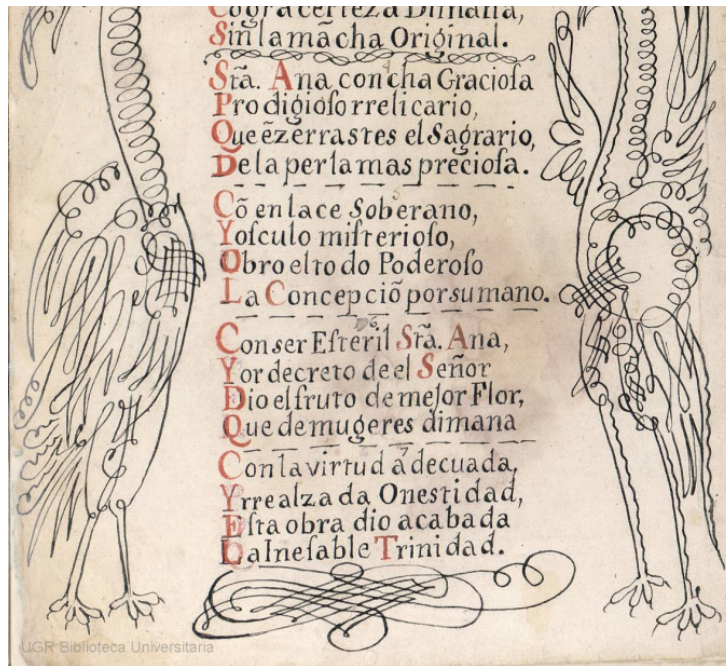 Cogra certeza Diuiana,
Sin la mãcha Original.
Stã. Ana concha Graciosa
Prodigioso rrelicario,
Que ẽzerrastes el Sagrario,
De la perla mas preciosa.
Cõ enlace Soberano,
Y osculo misterioso,
Obro el todo Poderoso
La Concepciõ por su mano.
Con ser Esteril Stã. Ana,
Y or decreto de el Señor
Dio el fruto de mejor Flor,
Que de mugeres dimana
Con la virtud ádecuada,
Yrrealzada Onestidad,
Esta obra dio acabada
La Inefable Trinidad.
UGR Biblioteca Universitaria